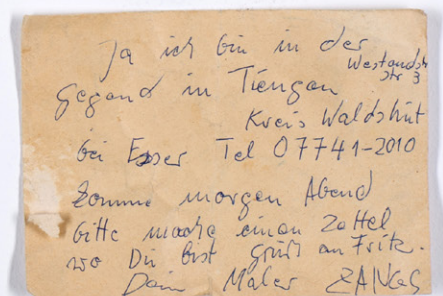 Ja ich bin in der
Gegend in Tiengen
Str 3
Kreis Waldshut
bei Esser Tel 07741-2010
komme morgen Abend
bitte mache einen Zettel
wo Du bist Gruß an Fritz.
Dein Maler